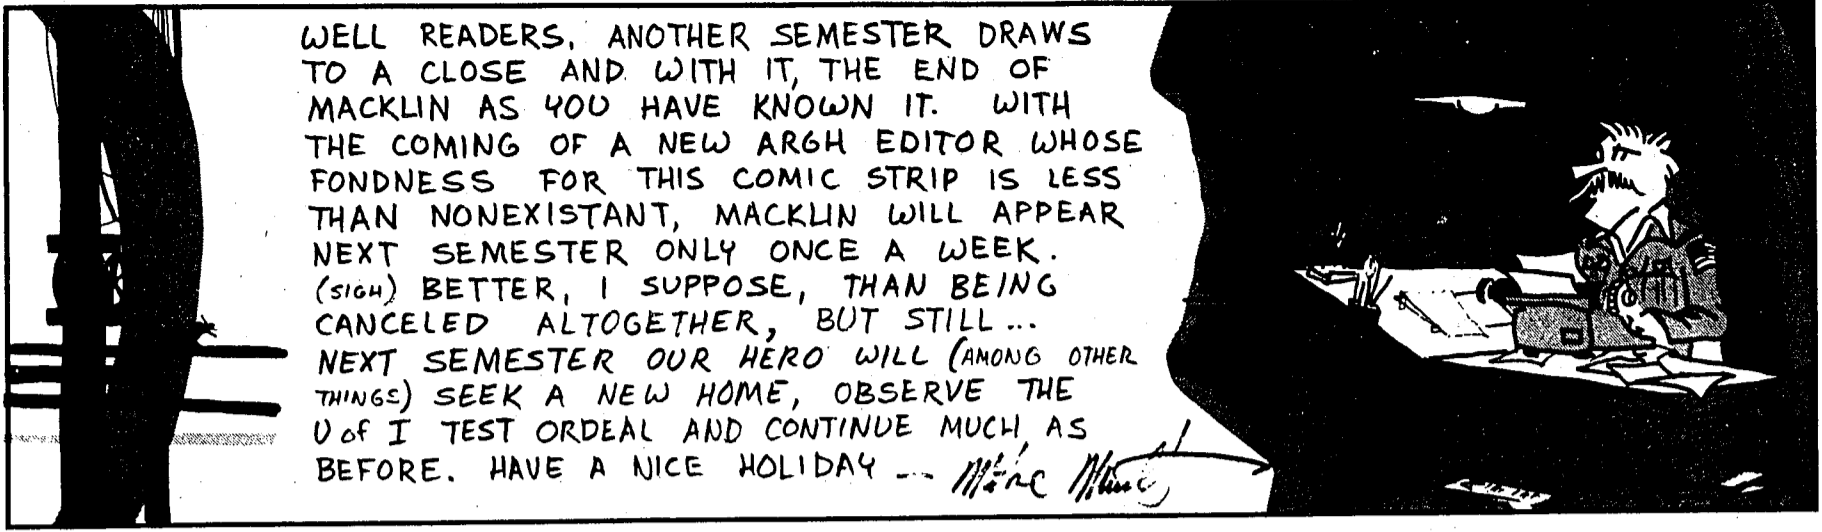 WELL READERS, ANOTHER SEMESTER DRAWS
TO A CLOSE AND WITH IT, THE END OF
MACKLIN AS YOU HAVE KNOWN IT. WITH
THE COMING OF A NEW ARGH EDITOR WHOSE
FONDNESS FOR THIS COMIC STRIP IS LESS
THAN NONEXISTANT, MACKLIN WILL APPEAR
NEXT SEMESTER ONLY ONCE A WEEK.
(SIGH) BETTER, I SUPPOSE, THAN BEING
CANCELED ALTOGETHER, BUT STILL...
NEXT SEMESTER OUR HERO WILL (AMONG OTHER
THINGS) SEEK A NEW HOME, OBSERVE THE
U of I TEST ORDEAL AND CONTINUE MUCH AS
BEFORE. HAVE A NICE HOLIDAY --